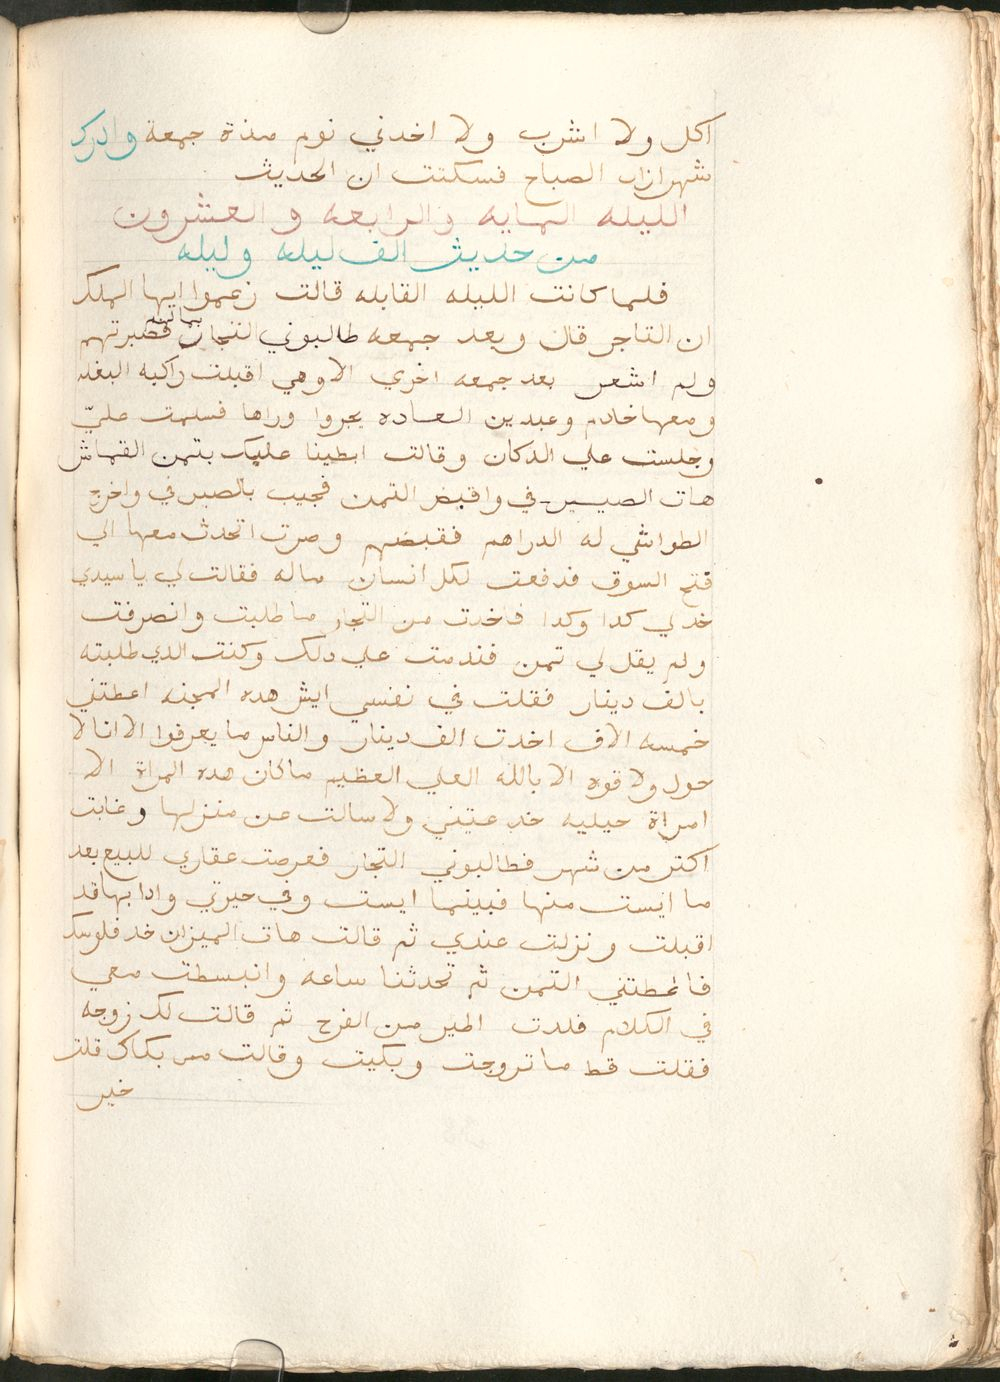 اكل ولا اشرب ولا اخدني نوم مدة جمعة وادرك
شهرازاد الصباح فسكتت ان الحديث
الليله المايه والرابعه والعشرون
من حديث الف ليله وليله
فلما كانت الليله القابله قالت زعموا ايها الملك
ان التاجر قال وبعد جمعه طالبوني التجار بمالهم فصبرتهم
ولم اشعر بعد جمعه اخري الا وهي اقبلت راكبه البغله
ومعها خادم وعبدين العاده يجروا وراها فسلمت عليّ
وجلست علي الدكان وقالت ابطينا عليك بتمن القماش
هات الصيرفي واقبض التمن فجيب بالصيرفي واخرج
الطواشي له الدراهم فقبضهم وصرت اتحدث معها الي
فتح السوق فدفعت لكل انسان ماله فقالت لي يا سيدي
خد لي كدا وكدا فاخدت من التجار ما طلبت وانصرفت
ولم يقل لي تمن فندمت علي دلك وكنت الدي طلبته
بالف دينار فقلت في نفسي ايش هده المحنه اعطتني
خمسه الاف اخدت الف دينار والناس ما يعرفوا الا انا لا
حول ولا قوه الا بالله العلي العظيم ما كان هده المراة الا
امراة حيليه خدعتني ولا سالت عن منزلها وغابت
اكتر من شهر فطالبوني التجار فعرضت عقاري للبيع بعد
ما ايست منها فبينما ايست وفي حيرتي وادا بها قد
اقبلت ونزلت عندي ثم قالت هات الميزان خد فلوسك
فاعطتني التمن ثم تحدثنا ساعه وانبسطت معي
في الكلام فلدت اطير من الفرح ثم قالت لك زوجه
فقلت قط ما تزوجت وبكيت وقالت مم بكاك قلت
خير